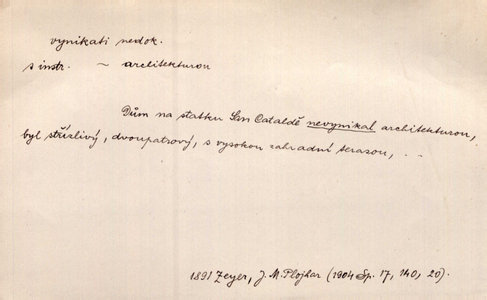 vynikati nedok.
s instr. ~ architekturou
Dům na statku San Cataldě nevynikal architekturou,
byl střízlivý, dvoupatrový, s vysokou zahradní terasou, . .
1891 Zeyer, J. M. Plojhar (1904 Sp. 17, 140, 20).